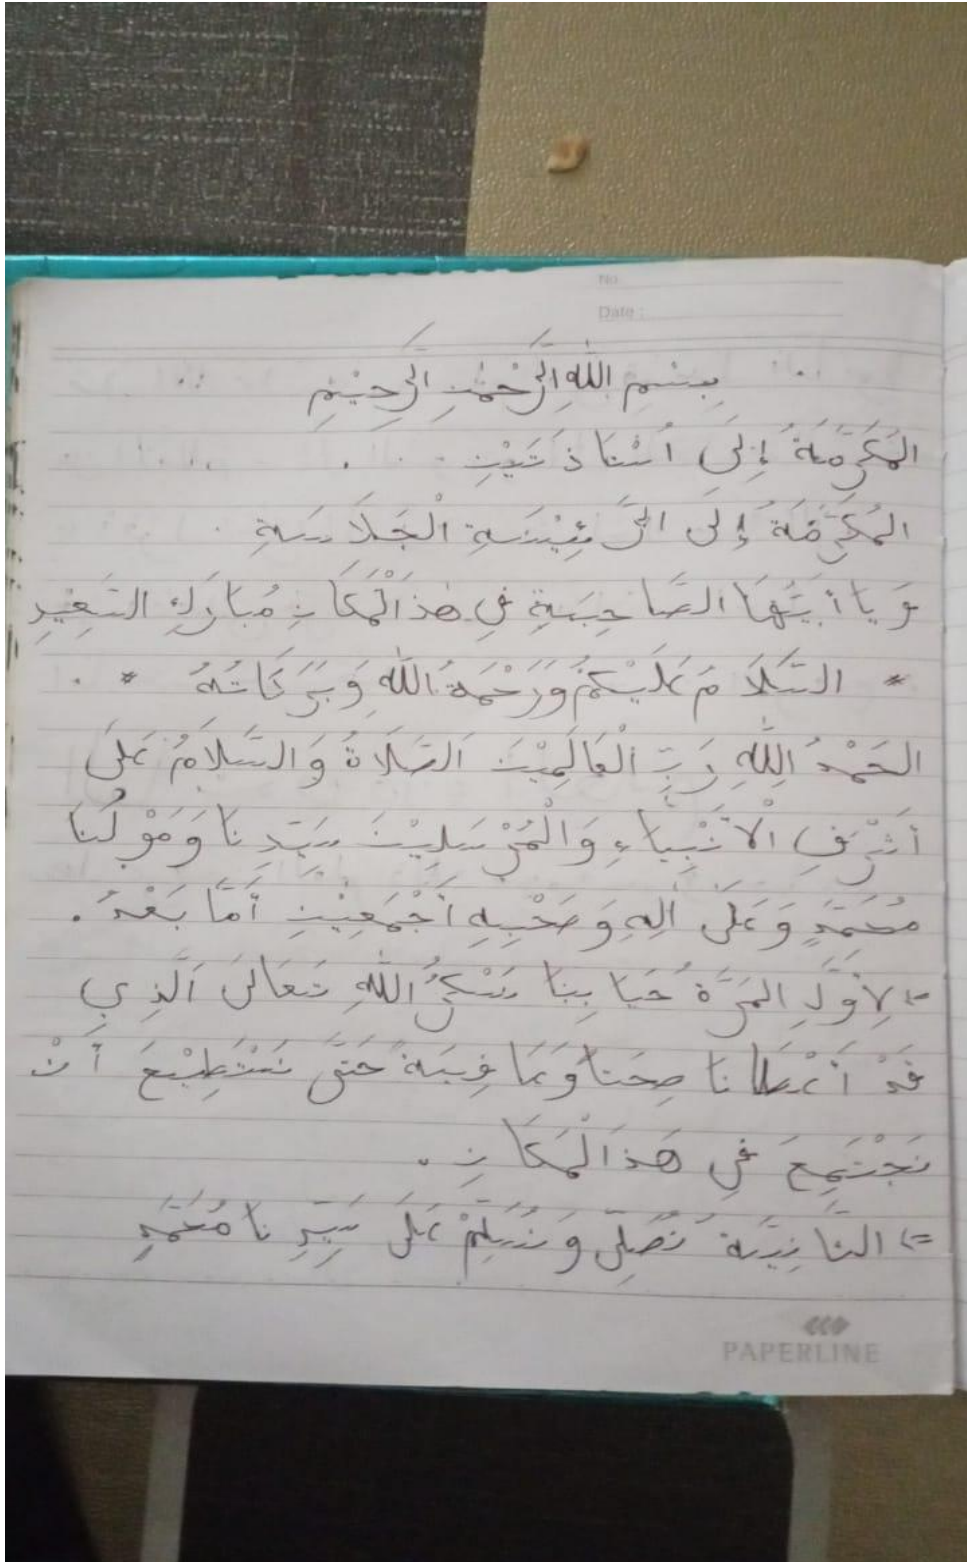 No
Date :
بِسْمِ اللّٰهِ الرَّحْمٰنِ الرَّحِيْمِ
المُكَرَّمَةُ إِلَى اُسْتَاذَتَيْنِ
المُكَرَّمَةُ إِلَى الرَّئِيْسَةِ الْجَلَاسَةِ
وَيَا أَيَّتُهَا الصَّاحِبَةِ فِي هٰذَالْمَكَانِ مُبَارَكِ السَعِيْدِ
* السَّلَامُ عَلَيْكُمْ وَرَحْمَةُ اللّٰهِ وَبَرَكَاتُهُ *
الحَمْدُ اللّٰهِ رَبِّ الْعَالَمِيْنَ اَلصَّلَاةُ وَالسَّلَامُ عَلَى
أَشْرَفِ الْأَنْبِيَاءِ وَالْمُرْسَلِيْنَ سَيِّدِنَا وَمَوْلٰنَا
مُحَمَّدٍ وَعَلَى اٰلِهِ وَصَحْبِهِ أَجْمَعِيْنِ أَمَّا بَعْدُ.
لِأَوَّلِ المَرَّةُ حَيَا بِنَا نَشْكُرُ اللّٰهِ تَعَالَى اَلَّذِي
قَدْ أَعْطَانَا صِحَتَا وَعَافِيَةً حَتَّى نَسْتَطِيْعَ أَنْ
نَجْتَمِعَ فِي هَذَالْمَكَانِ.
=> الثَّانِيَةُ نُصَلِّى وَنُسَلِّمْ عَلَى سَيِّدِنَا مُحَمَّدٍ
PAPERLINE